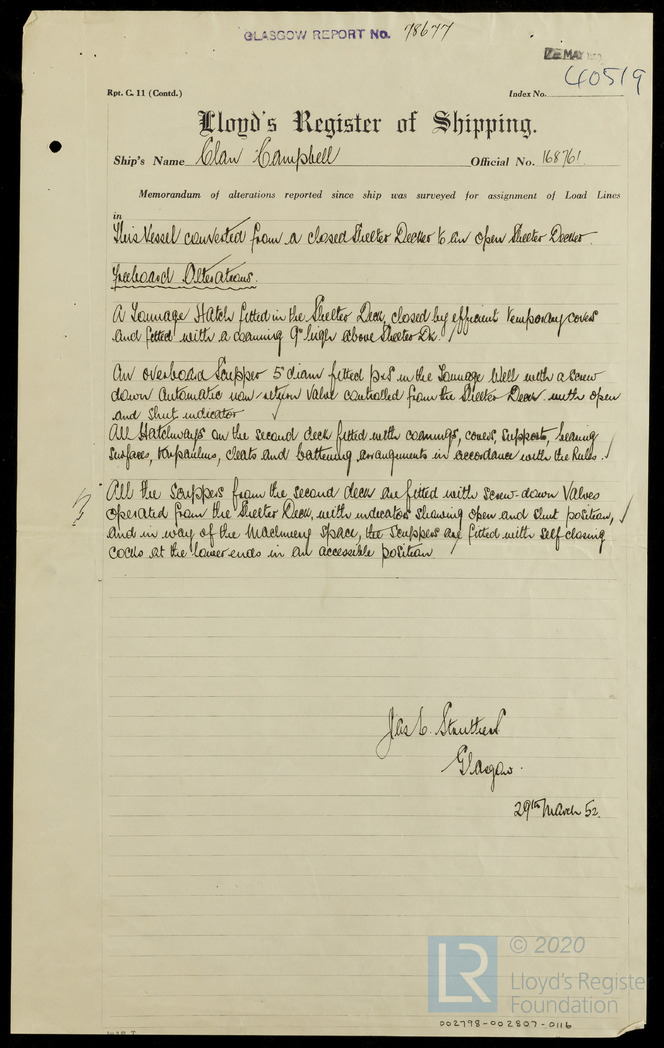 GLASGOW REPORT No. 78677
MAY
40519
Rpt. C. 11 (Contd.)
Index No.
Lloyd's Register of Shipping.
Ship's Name Clan Campbell Official No. 168761
Memorandum of alterations reported since ship was surveyed for assignment of Load Lines
in
This Vessel converted from a closed Shelter Decker to an open Shelter Decker.
Freeboard Alterations.
A Tonnage Hatch fitted in the Shelter Deck, closed by efficient temporary covers
and fitted with a coaming 9" high above Shelter Dk.
An overboard Scupper 5" diam fitted P&S in the Tonnage Well with a screw
down automatic non-return Valve controlled from the Shelter Deck with open
and shut indicator
All Hatchways on the second deck fitted with coamings, covers, supports, bearing
surfaces, tarpaulins, cleats and battening arrangements in accordance with the Rules.
All the scuppers from the second deck are fitted with screw-down Valves
operated from the Shelter Deck, with indicator showing open and shut position,
and in way of the Machinery Space, the scuppers are fitted with self closing
cocks at the lower ends in an accessible position
Jas C. Struthers
Glasgow.
29th March 52.
LR © 2020
Lloyd's Register
Foundation
002798-002807-0116